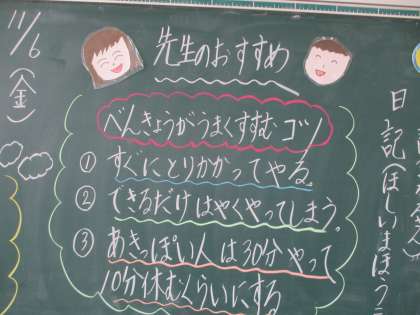 11/6(金)
先生のおすすめ
べんきょうがうまくすすむコツ
① すぐにとりかかってやる。
② できるだけはやくやってしまう。
③ あきっぽい人は30分やって
10分休むくらいにする
日記(ほしいまほう